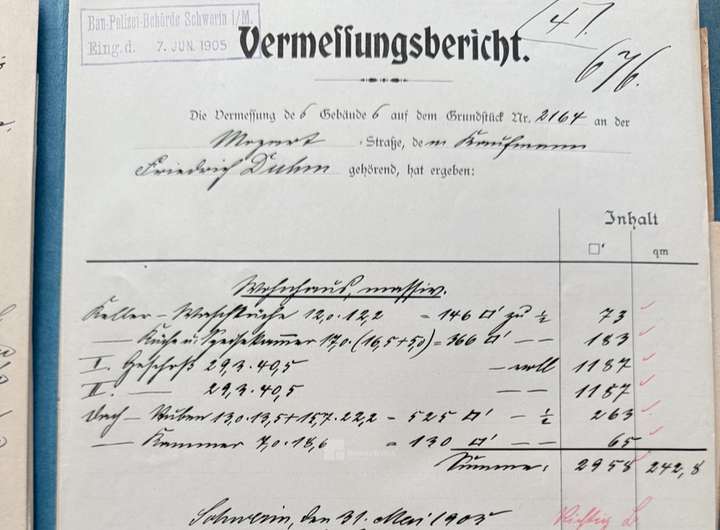 Bau-Polizei-Behörde Schwerin i/M.
Eing. d. 7. JUN. 1905
Vermessungsbericht.
676.
Die Vermessung des Gebäudes auf dem Grundstück Nr. 2164 an der
Mozart -Straße, dem Kaufmann
Friedrich Duhm gehörend, hat ergeben:
Inhalt
□' qm
Wohnhaus, massiv.
Keller – Waschküche 12,0·12,2 = 146 □' zu ½ 73
— Küche u. Speisekammer 17,0·(16,5+5,0) = 366 □' — — 183
I. Geschoß 29,3·40,5 — voll 1187
II. — 29,3·40,5 — — 1187
Dach – Stuben 13,0·13,5+15,7·22,2 = 525 □' — ½ 263
— Kammer 7,0·18,6 = 130 □' — — 65
Summe: 2958 242,8
Schwerin, den 31. Mai 1905
Richtig